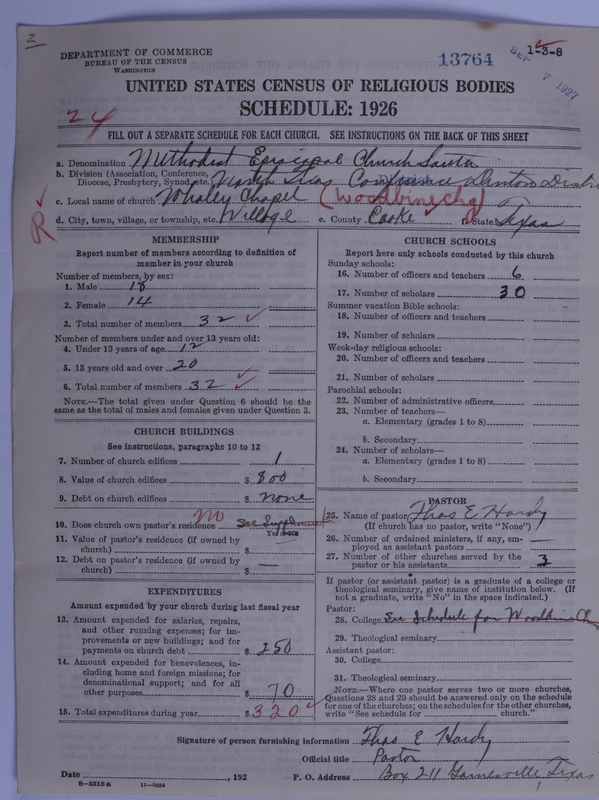 2
DEPARTMENT OF COMMERCE
BUREAU OF THE CENSUS
WASHINGTON
13764
SEP 7 1927
1-3-8
UNITED STATES CENSUS OF RELIGIOUS BODIES
SCHEDULE: 1926
24
FILL OUT A SEPARATE SCHEDULE FOR EACH CHURCH. SEE INSTRUCTIONS ON THE BACK OF THIS SHEET
a. Denomination Methodist Episcopal Church South
b. Division (Association, Conference,
Diocese, Presbytery, Synod, etc. North Texas Conference, Denton Distri
c. Local name of church Whaley Chapel (Woodbine, chg)
R
d. City, town, village, or township, etc. Village e. County Cooke f. State Texas
MEMBERSHIP
Report here number of members according to definition of
member in your church
Number of members, by sex:
1. Male 18
2. Female 14
3. Total number of members 32
Number of members under and over 13 years old:
4. Under 13 years of age 12
5. 13 years old and over 20
6. Total number of members 32
NOTE.—The total given under Question 6 should be the
same as the total of males and females given under Question 3.
CHURCH BUILDINGS
See instructions, paragraphs 10 to 12
7. Number of church edifices 1
8. Value of church edifices $ 800
9. Debt on church edifices $ none
10. Does church own pastor's residence no See Supplement
Yes or no
11. Value of pastor's residence (if owned by
church) $
12. Debt on pastor's residence (if owned by
church) $ —
EXPENDITURES
Amount expended by your church during last fiscal year
13. Amount expended for salaries, repairs,
and other running expenses; for im-
provements or new buildings; and for
payments on church debt $ 250
14. Amount expended for benevolences, in-
cluding home and foreign missions; for
denominational support; and for all
other purposes $ 70
15. Total expenditures during year $ 320
CHURCH SCHOOLS
Report here only schools conducted by this church
Sunday schools:
16. Number of officers and teachers 6
17. Number of scholars 30
Summer vacation Bible schools:
18. Number of officers and teachers
19. Number of scholars
Week-day religious schools:
20. Number of officers and teachers
21. Number of scholars
Parochial schools:
22. Number of administrative officers
23. Number of teachers—
a. Elementary (grades 1 to 8)
b. Secondary
24. Number of scholars—
a. Elementary (grades 1 to 8)
b. Secondary
PASTOR
25. Name of pastor Thos E. Hardy
(If church has no pastor, write "None")
26. Number of ordained ministers, if any, em-
ployed as assistant pastors —
27. Number of other churches served by the
pastor or his assistants 3
If pastor (or assistant pastor) is a graduate of a college or
theological seminary, give name of institution below. (If
not a graduate, write "No" in the space indicated.)
Pastor:
28. College See Schedule for Woodbine Ch
29. Theological seminary
Assistant pastor:
30. College
31. Theological seminary
NOTE.—Where one pastor serves two or more churches,
Questions 28 and 29 should be answered only on the schedule
for one of the churches; on the schedules for the other churches,
write "See schedule for church."
Signature of person furnishing information Thos E Hardy
Official title Pastor
Date , 192 P. O. Address Box 211 Gainesville, Texas
8-5518 a 11-9354